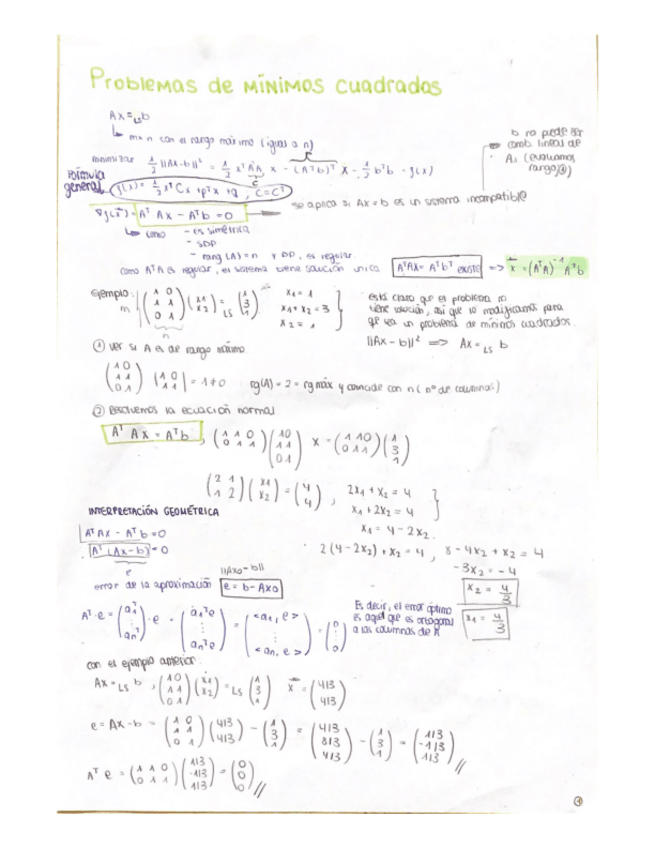 Problemas de MÍNIMOS CUADRADOS
Ax =LS b
↳ m×n con el rango máximo (igual a n)
b no puede ser comb. lineal de
minimizar 1/2 ||Ax-b||² = 1/2 xᵀAᵀA x - (Aᵀb)ᵀ x - 1/2 bᵀb = g(x)
Fórmula general
g(x) = 1/2 xᵀCx + pᵀx + q, C = Cᵀ
AᵀAx - Aᵀb = 0
se aplica si Ax = b es un sistema incompatible
↳ como - es simétrica
- SDP
- rang(A) = n y DP, es regular.
como AᵀA es regular, el sistema tiene solución única AᵀAx = Aᵀbᵀ existe => x = (AᵀA)⁻¹ Aᵀb
Ejemplo: m (1 0 / 1 1 / 0 1) (x1 / x2) =LS (1 / 3 / 1) x1 = 1
x1 + x2 = 3
x2 = 1
n
está claro que el problema no
tiene solución, así que lo modificamos para
que sea un problema de mínimos cuadrados.
||Ax-b||² => Ax =LS b
① Ver si A es de rango máximo
(1 0 / 1 1 / 0 1) |1 0 / 1 1| = 1 ≠ 0 rg(A) = 2 = rg máx y coincide con n (nº de columnas)
② Resolvemos la ecuación normal
AᵀAx = Aᵀb , (1 1 0 / 0 1 1) (1 0 / 1 1 / 0 1) x = (1 1 0 / 0 1 1) (1 / 3 / 1)
(2 1 / 1 2) (x1 / x2) = (4 / 4) , 2x1 + x2 = 4
x1 + 2x2 = 4
x1 = 4 - 2x2.
2(4 - 2x2) + x2 = 4, 8 - 4x2 + x2 = 4
-3x2 = -4
x2 = 4/3
x1 = 4/3
INTERPRETACIÓN GEOMÉTRICA
AᵀAx - Aᵀb = 0
Aᵀ(Ax-b) = 0
e
||Ax0 - b||
error de la aproximación e = b - Ax0
Aᵀ·e = (a1ᵀ / ⋮ / anᵀ) · e = (a1ᵀe / ⋮ / anᵀe) = (<a1, e> / ⋮ / <an, e>) = (0 / ⋮ / 0)
Es decir, el error óptimo
es aquel que es ortogonal
a las columnas de A
con el ejemplo anterior:
Ax =LS b , (1 0 / 1 1 / 0 1) (x1 / x2) =LS (1 / 3 / 1) x = (4/3 / 4/3)
e = Ax - b = (1 0 / 1 1 / 0 1) (4/3 / 4/3) - (1 / 3 / 1) = (4/3 / 8/3 / 4/3) - (1 / 3 / 1) = (1/3 / -1/3 / 1/3) //
Aᵀ e = (1 1 0 / 0 1 1) (1/3 / -1/3 / 1/3) = (0 / 0 / 0) //
①